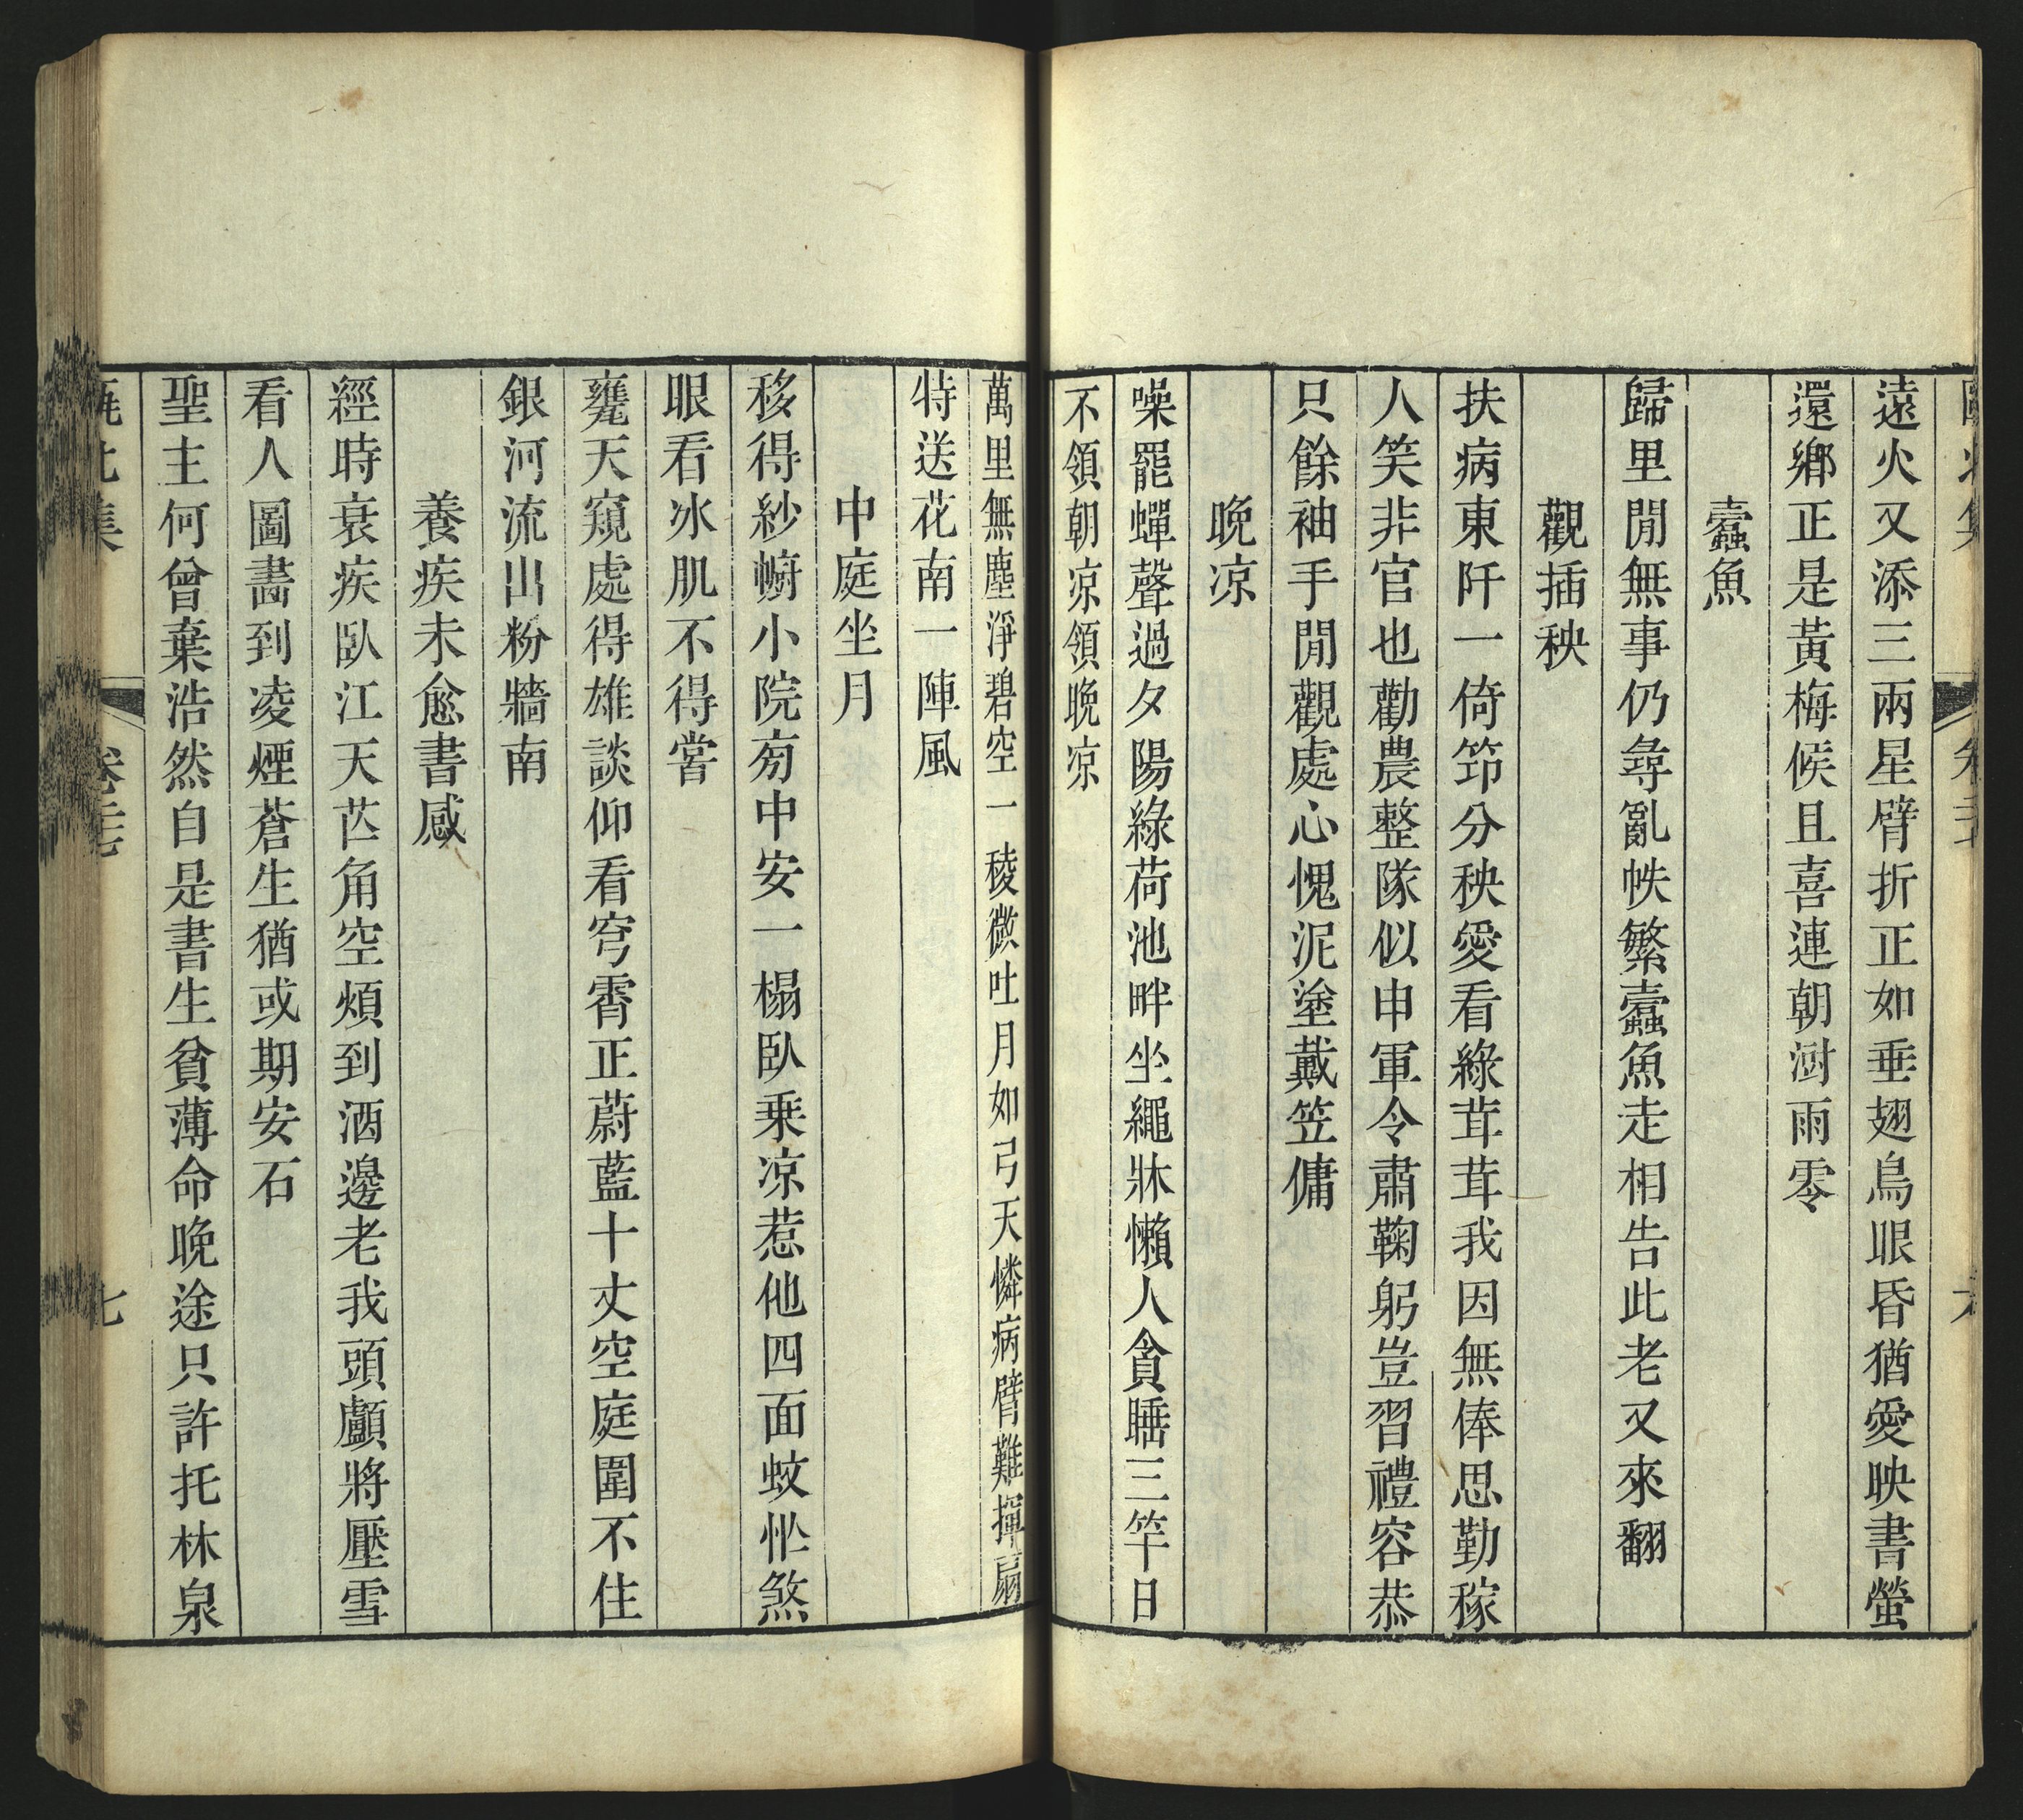 遠火又添三兩星臂折正如垂翅鳥眼昏猶愛映書螢
還鄉正是黃梅候且喜連朝澍雨零
蠹魚
歸里閒無事仍尋亂帙繁蠹魚走相告此老又來翻
觀插秧
扶病東阡一倚笻分秧愛看綠茸茸我因無俸思勤稼
人笑非官也勸農整隊似申軍令肅鞠躬豈習禮容恭
只餘袖手閒觀處心愧泥塗戴笠傭
晚凉
噪罷蟬聲過夕陽綠荷池畔坐繩牀懶人貪睡三竿日
不領朝凉領晚凉
萬里無塵淨碧空一稜微吐月如弓天憐病臂難揮扇
特送花南一陣風
中庭坐月
移得紗㡡小院㫄中安一榻臥乘凉惹他四面蚊忙煞
眼看冰肌不得嘗
甕天窺處得雄談仰看穹霄正蔚藍十丈空庭圍不住
銀河流出粉牆南
養疾未愈書感
經時衰疾臥江天芒角空煩到酒邊老我頭顱將壓雪
看人圖畵到凌煙蒼生猶或期安石
聖主何曾棄浩然自是書生貧薄命晚途只許托林泉
甌北集
卷三七
七